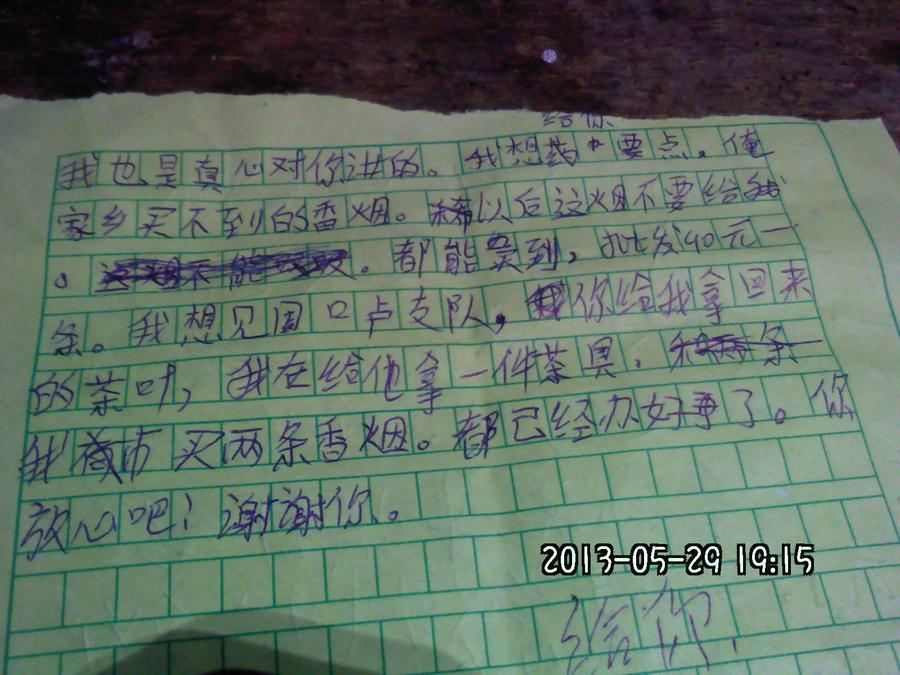 给你
我也是真心对你讲的。我想节中要点。俺
家乡买不到的香烟。以后这烟不要给我
。都能买到，批发40元一
条。我想见周口卢支队，你给我拿回来
的茶叶，我在给他拿一件茶具．
我夜市买两条香烟。都已经办好事了。你
放心吧！谢谢你。
2013-05-29 19:15
给你．